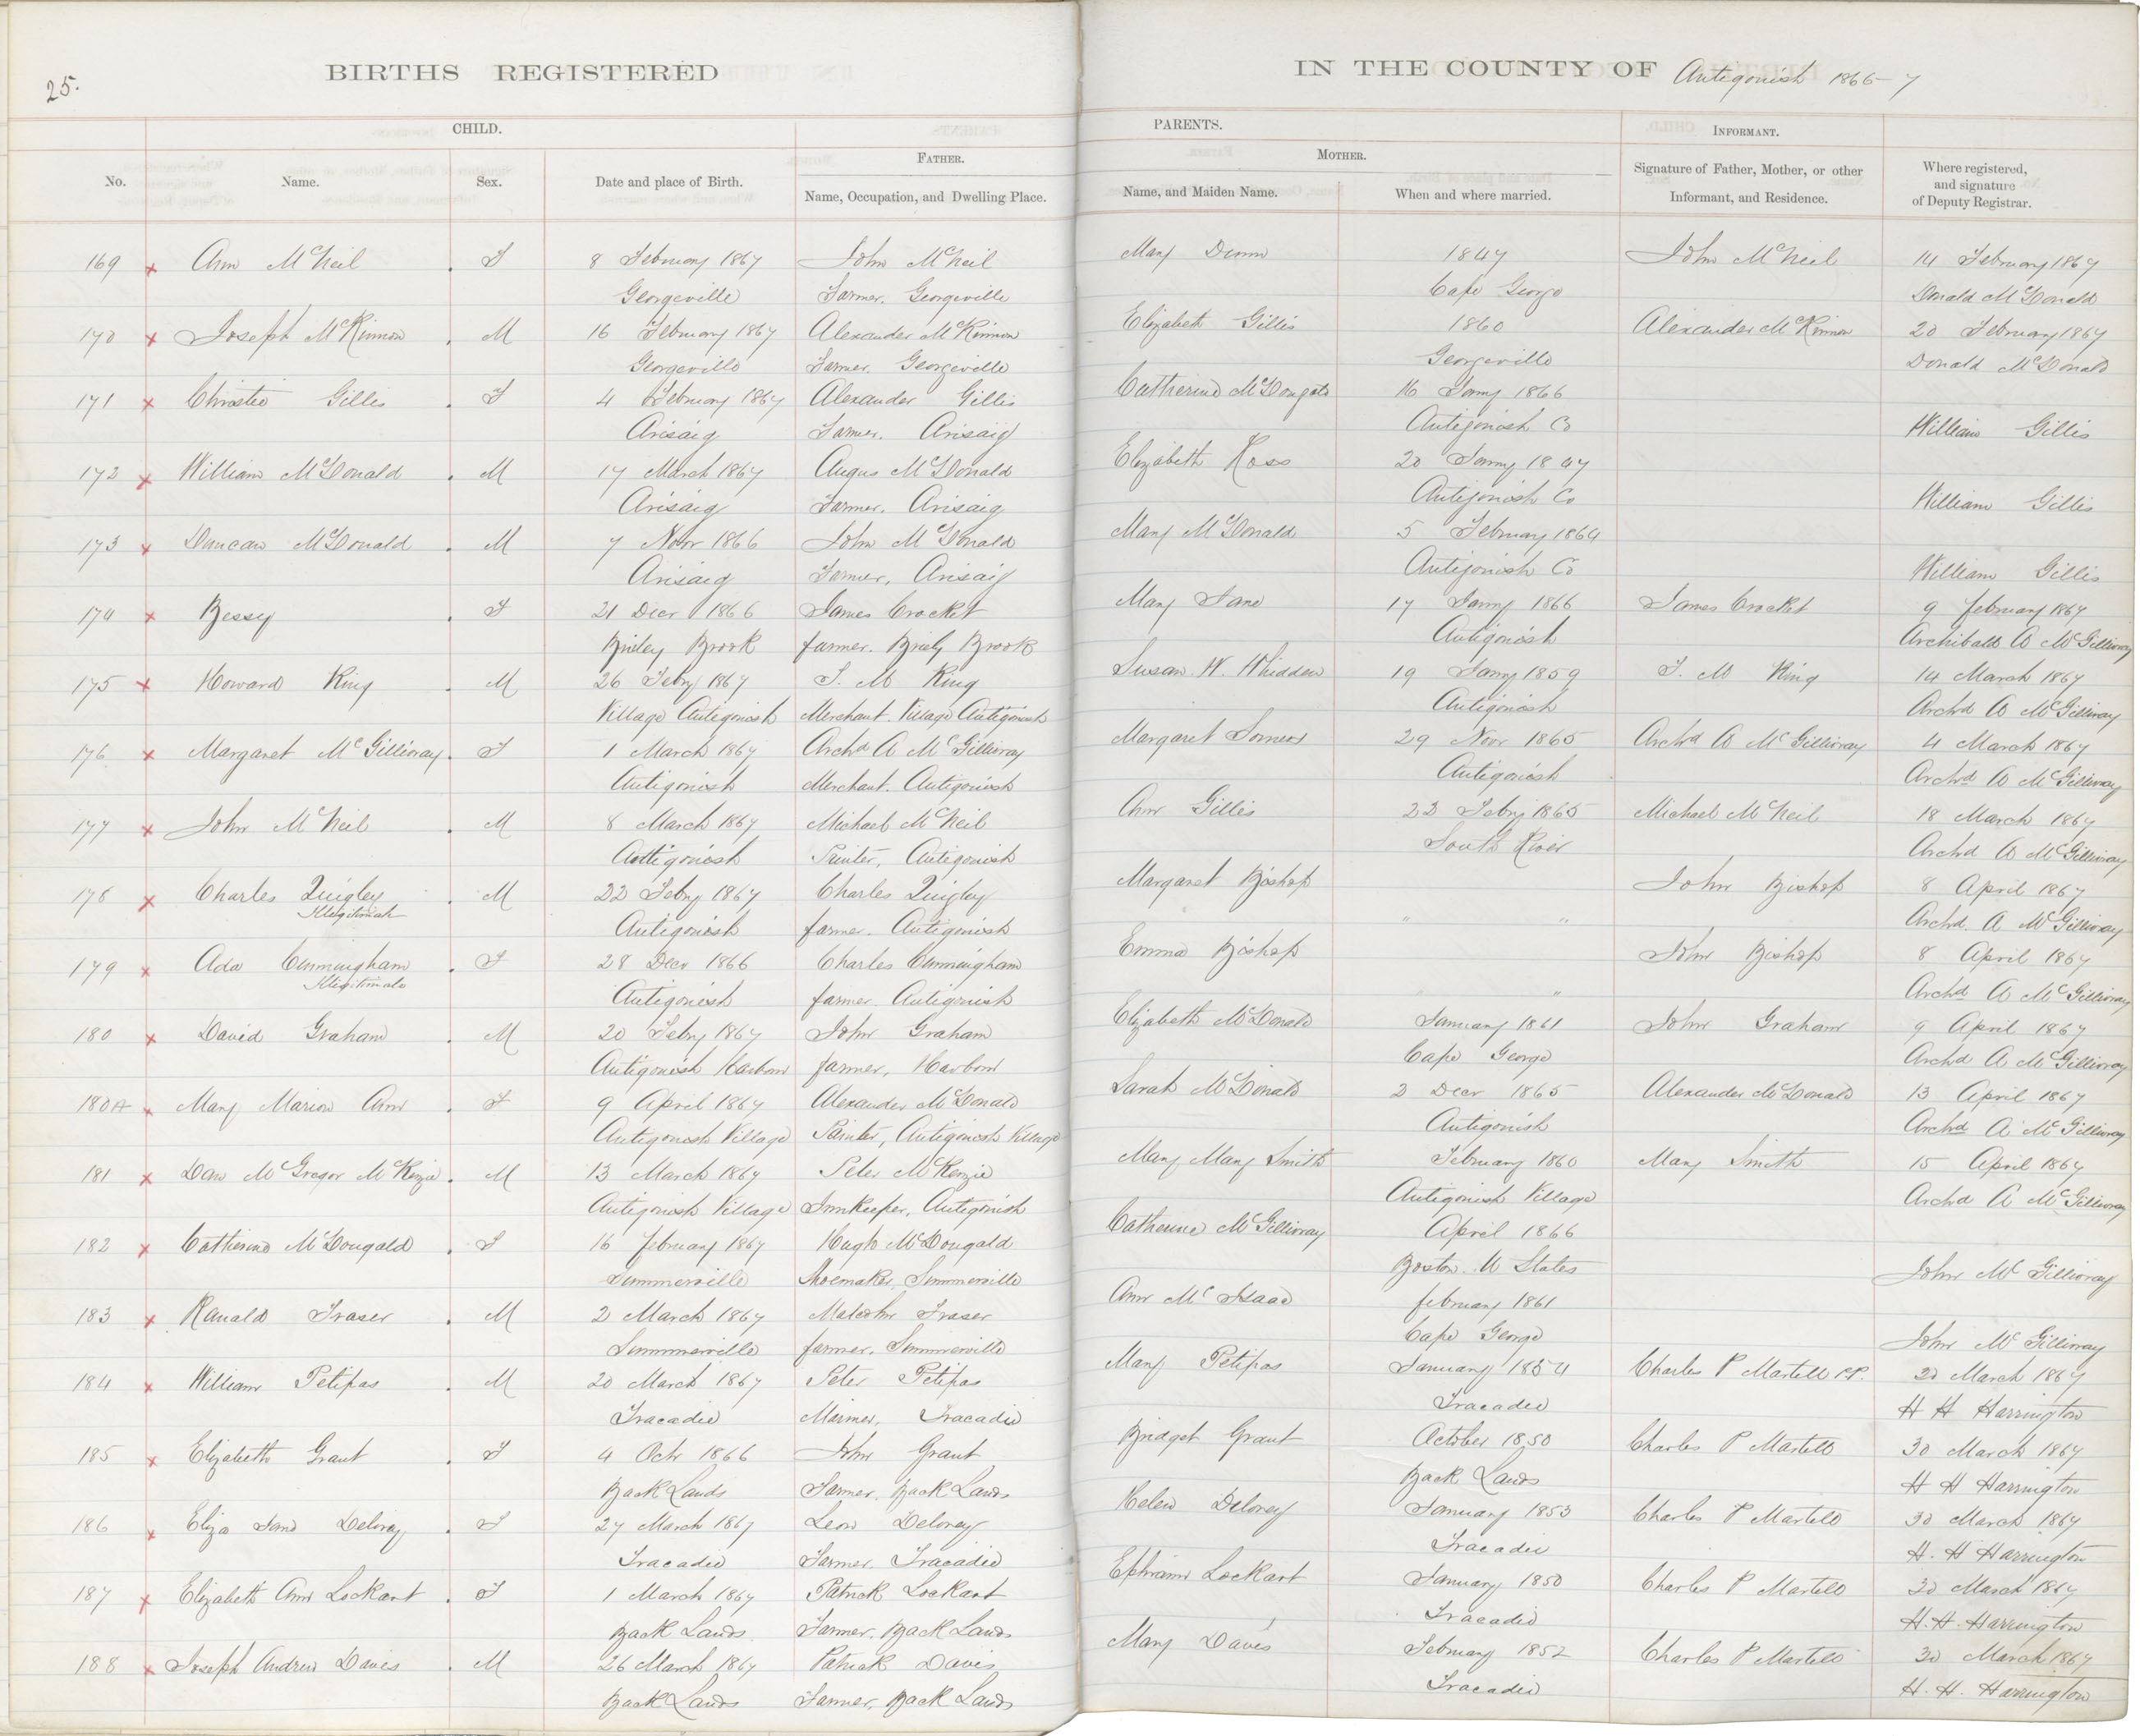 25.
BIRTHS REGISTERED
IN THE COUNTY OF Antigonish 1866-7
CHILD.
PARENTS.
INFORMANT.
FATHER.
MOTHER.
No.
Name.
Sex.
Date and place of Birth.
Name, Occupation, and Dwelling Place.
Name, and Maiden Name.
When and where married.
Signature of Father, Mother, or other
Informant, and Residence.
Where registered,
and signature
of Deputy Registrar.
169 x Ann McNeil . F 8 February 1867 John McNeil Mary Dunn 1847 John McNeil 14 February 1867
Georgeville Farmer. Georgeville Cape George Donald McDonald
170 x Joseph McKinnon . M 16 February 1867 Alexander McKinnon Elizabeth Gillis 1860 Alexander McKinnon 20 February 1867
Georgeville Farmer. Georgeville Georgeville Donald McDonald
171 x Christie Gillis . F 4 February 1867 Alexander Gillis Catherine McDougald 16 Jany 1866
Arisaig Farmer. Arisaig Antigonish Co William Gillis
172 x William McDonald . M 17 March 1867 Angus McDonald Elizabeth Ross 20 Jany 1847
Arisaig Farmer. Arisaig Antigonish Co William Gillis
173 x Duncan McDonald . M 7 Novr 1866 John McDonald Mary McDonald 5 February 1864
Arisaig Farmer, Arisaig Antigonish Co William Gillis
174 x Bessy . F 21 Decr 1866 James Crocket Mary Jane 17 Jany 1866 James Crocket 9 february 1867
Briley Brook farmer. Briely Brook Antigonish Archibald A McGillivray
175 x Howard King . M 26 Feby 1867 T. M King Susan W. Whidden 19 Jany 1859 T. M King 14 March 1867
Village Antigonish Merchant. Village Antigonish Antigonish Archd A McGillivray
176 x Margaret McGillivray . F 1 March 1867 Archd A McGillivray Margaret Somers 29 Novr 1865 Archd A McGillivray 4 March 1867
Antigonish Merchant. Antigonish Antigonish Archd A McGillivray
177 x John McNeil . M 8 March 1867 Michael McNeil Ann Gillis 22 Feby 1865 Michael McNeil 18 March 1867
Antigonish Painter, Antigonish South River Archd A McGillivray
178 x Charles Quigley . M 22 Feby 1867 Charles Quigley Margaret Bishop John Bishop 8 April 1867
Illegitimate Antigonish farmer. Antigonish " " Archd. A McGillivray
179 x Ada Cunningham . F 28 Decr 1866 Charles Cunningham Emma Bishop John Bishop 8 April 1867
Illegitimate Antigonish farmer. Antigonish " " Archd A McGillivray
180 x David Graham . M 20 Feby 1867 John Graham Elizabeth McDonald January 1861 John Graham 9 April 1867
Antigonish Harbour farmer, Harbour Cape George Archd A McGillivray
180A x Mary Marion Ann . F 9 April 1867 Alexander McDonald Sarah McDonald 2 Decr 1865 Alexander McDonald 13 April 1867
Antigonish Village Painter, Antigonish Village Antigonish Archd A McGillivray
181 x Dan McGregor McKenzie . M 13 March 1867 Peter McKenzie Mary Mary Smith February 1860 Mary Smith 15 April 1867
Antigonish Village Innkeeper, Antigonish Antigonish Village Archd A McGillivray
182 x Catherine McDougald . F 16 february 1867 Hugh McDougald Catherine McGillivray April 1866
Summerville Shoemaker, Summerville Boston U States John McGillivray
183 x Ranald Fraser . M 2 March 1867 Malcolm Fraser Ann McIsaac february 1861
Summerville farmer. Summerville Cape George John McGillivray
184 x William Petipas . M 20 March 1867 Peter Petipas Mary Petipas January 1854 Charles P Martell P.P. 30 March 1867
Tracadie Mariner, Tracadie Tracadie H H Harrington
185 x Elizabeth Grant . F 4 Octr 1866 John Grant Bridget Grant October 1850 Charles P Martell 30 March 1867
Back Lands Farmer. Back Lands Back Lands H H Harrington
186 x Eliza Jane Delorey . F 27 March 1867 Leon Delorey Helen Delorey January 1853 Charles P Martell 30 March 1867
Tracadie Farmer. Tracadie Tracadie H. H Harrington
187 x Elizabeth Ann Lockart . F 1 March 1867 Patrick Lockart Ephraim Lockart January 1850 Charles P Martell 30 March 1867
Back Lands. Farmer. Back Lands Tracadie H. H. Harrington
188 x Joseph Andrew Davis . M 26 March 1867 Patrick Davis Mary Davis February 1852 Charles P Martell 30 March 1867
Back Lands Farmer, Back Lands Tracadie H. H. Harrington